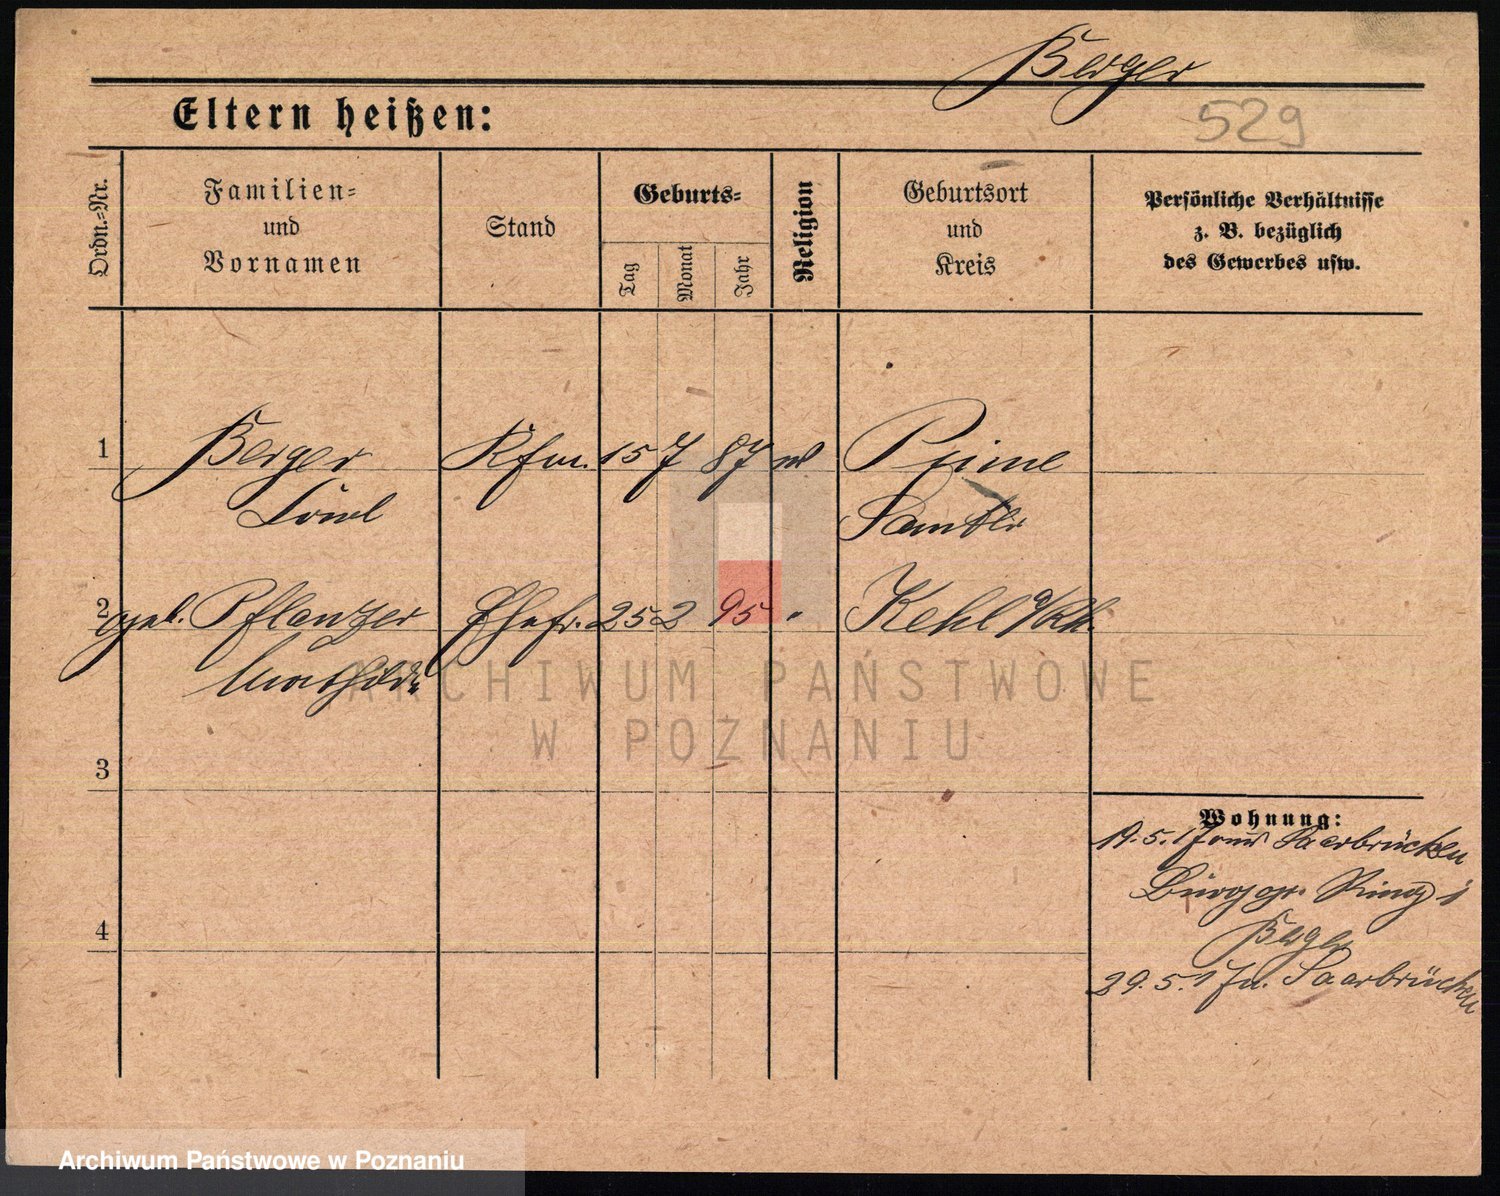 Berger
529
Eltern heißen:
Ordn.-Nr.
Familien-
und
Vornamen
Stand
Geburts-
Tag
Monat
Jahr
Religion
Geburtsort
und
Kreis
Persönliche Verhältnisse
z. B. bezüglich
des Gewerbes usw.
1 Berger Kfm. 15 7 87 Pinne
Samter
2 geb. Pflanzer Ehefr. 25 2 95 " Kehl a/Rh.
Mathilde
ARCHIWUM PAŃSTWOWE
W POZNANIU
3
Wohnung:
19.5.17 aus Saarbrücken
Ring
4
Berger
29.5.17 n. Saarbrücken
Archiwum Państwowe w Poznaniu